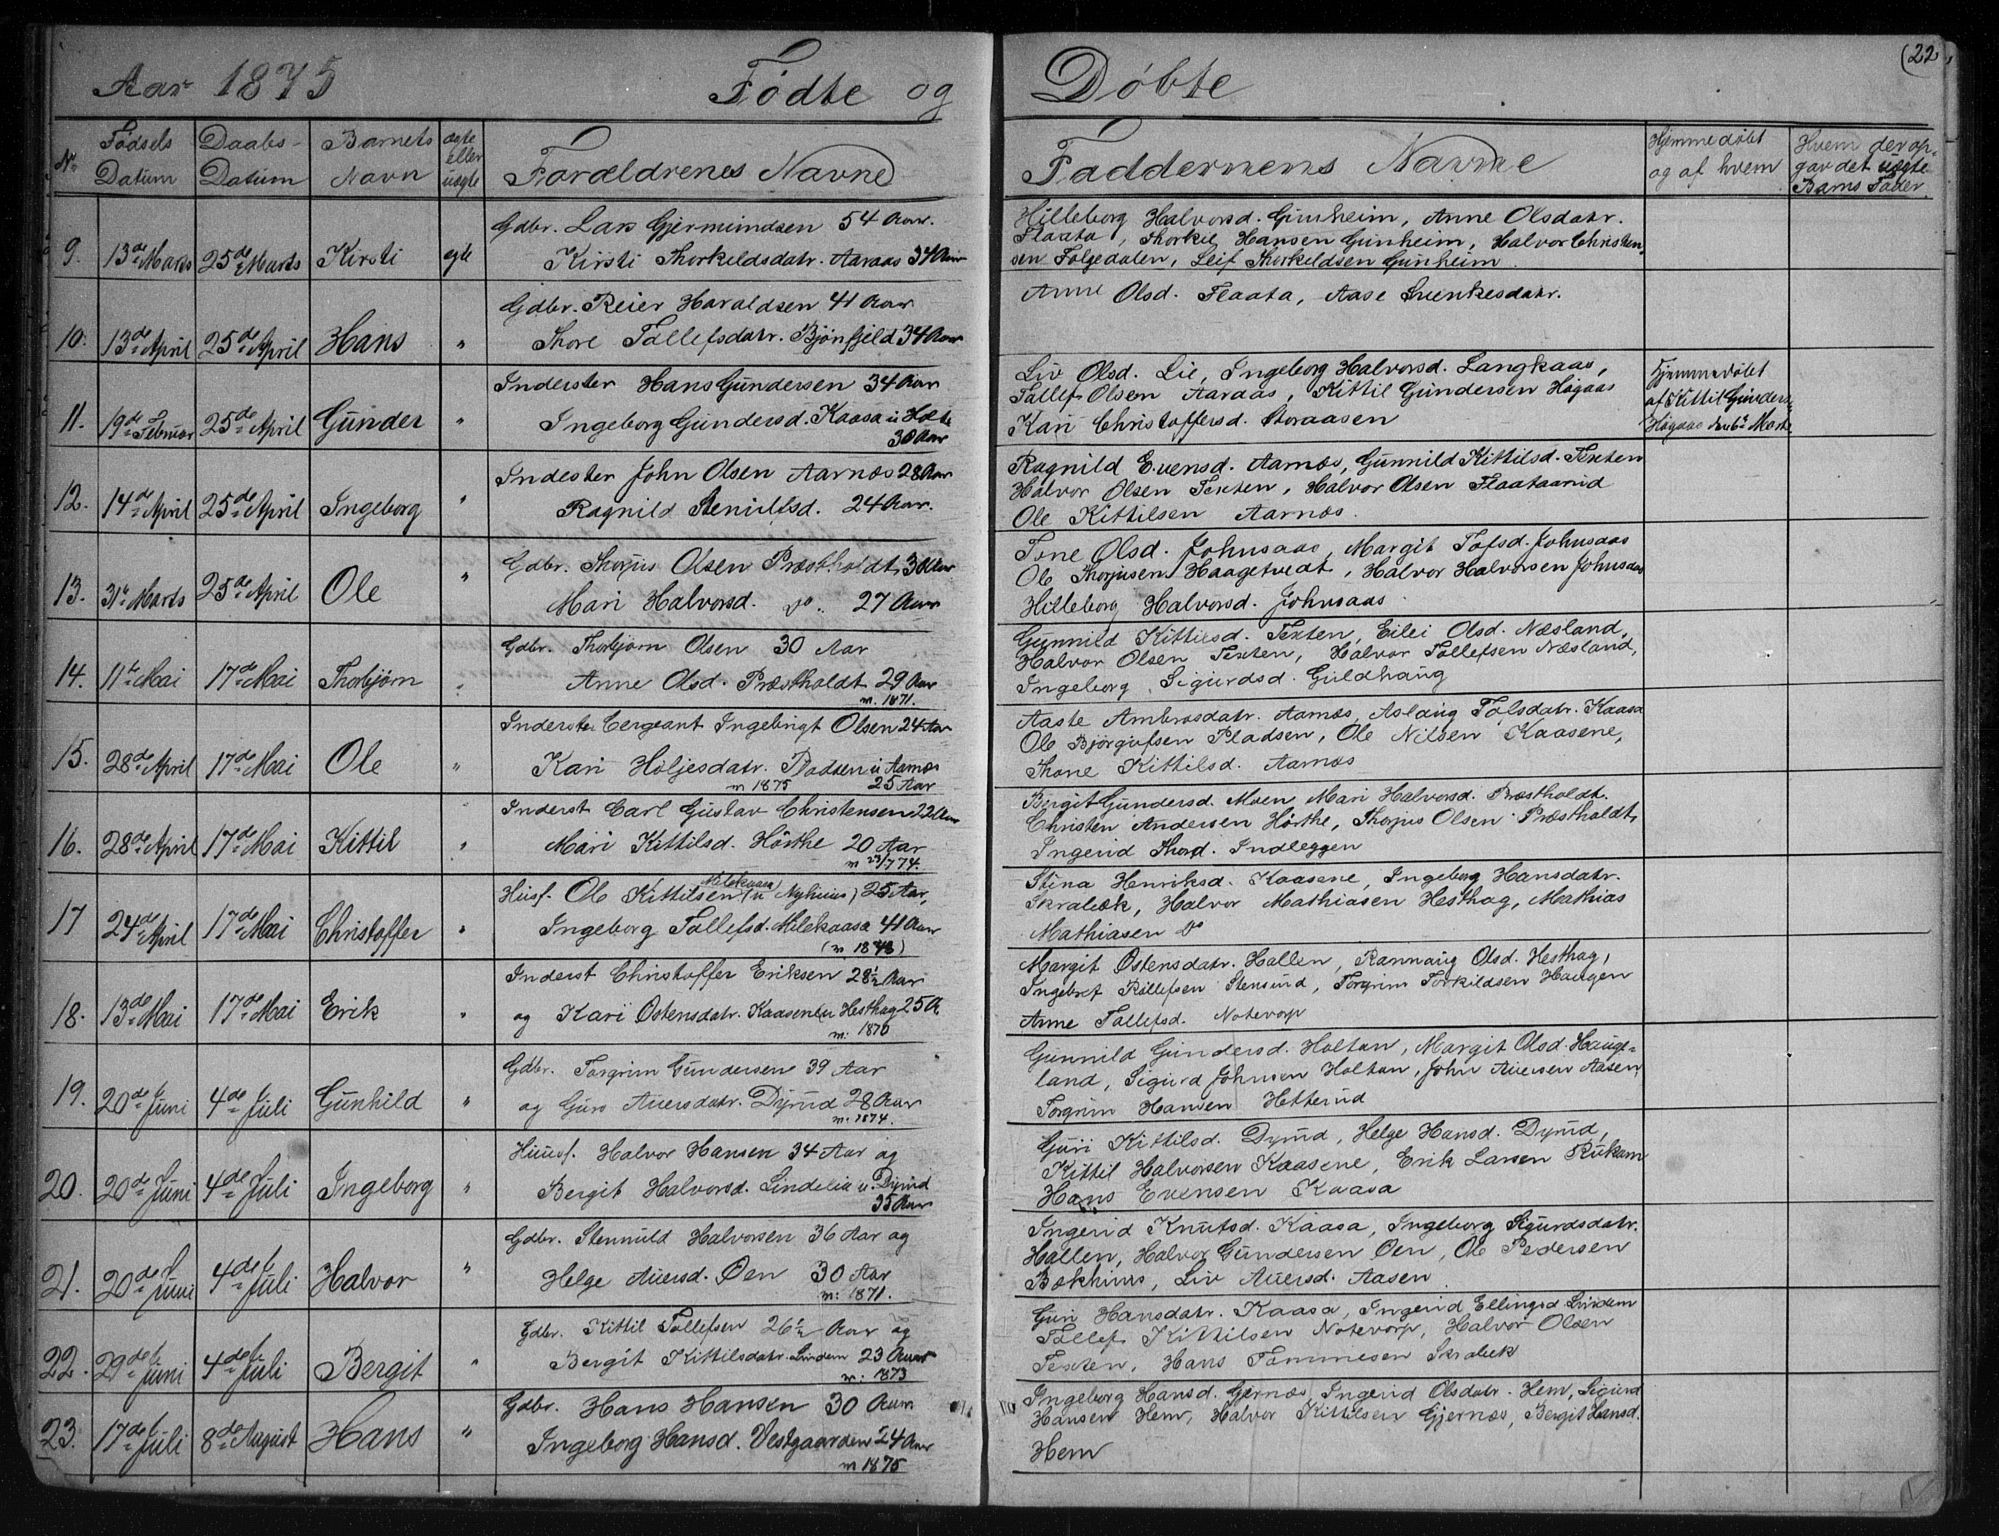 Aar 1875 Fødte og Døbte (22)
No Fødsels Datum Daabs-Datum Barnets Navn ægte eller uægte Forældrenes Navne Faddernens Navne Hjemmedøbt og af hvem Hvem der opgav det uægte Barns Fader
9. 13de Marts 25de Marts Kirsti egte Gdbr. Lars Gjermundsen 54 Aar.
Kirsti Thorkildsdatr. Aaraas 34 Aar
Hilleborg Halvorsd. Gunheim, Anne Olsdatr.
Flaata, Thorkil Hansen Gunheim, Halvor Christen-
sen Følgedalen, Leif Thorkildsen Gunheim.
10. 13de April 25de April Hans " Gdbr. Reier Haraldsen 41 Aar
Thore Tollefsdatr. Bjønfjeld 34 Aar
Anne Olsd. Flaata, Aase Svenkesdatr.
11. 19de Februar 25de April Gunder " Inderster Hans Gundersen 34 Aar
Ingeborg Gundersd. Kaasa u Holte
30 Aar
Liv Olsd. Lie, Ingeborg Halvorsd. Langkaas,
Tallef Olsen Aaraas, Kittil Gundersen Høgaas
Kari Christoffersd. Storaasen
Hjemmedøbt
af Kittil Gunders.
Høgaas den 6te Marts
12. 14de April 25de April Ingeborg " Indester John Olsen Aarnæs 28 Aar
Ragnild Stenulfsd. 24 Aar.
Ragnild Evensd. Aarnæs, Gunnild Kittilsd. Texten
Halvor Olsen Texten, Halvor Olsen Flaatarud
Ole Kittilsen Aarnæs.
13. 31te Marts 25de April Ole " Gdbr. Thorjus Olsen Præstholdt 30 Aar
Mari Halvorsd. do. 27 Aar
Tone Olsd. Johnsaas, Margit Tofsd. Johnsaas
Ole Thorjusen Haagetvedt, Halvor Halvorsen Johnsaas
Hilleborg Halvorsd. Johnsaas.
14. 11te Mai 17de Mai Thorbjørn " Gdbr. Thorbjørn Olsen 30 Aar
Anne Olsd. Præstholdt 29 Aar
m. 1871.
Gunnild Kittilsd. Texten, Eilei Olsd. Næsland,
Halvor Olsen Texten, Halvor Tollefsen Næsland,
Ingeborg Sigurdsd. Guldhaug
15. 28de April 17de Mai Ole " Inderste Cergeant Ingebrigt Olsen 24 Aar
Kari Høljesdatr. Pladsen u Aarnæs
m 1875 25 Aar
Aaste Ambrosdatr. Aarnæs, Aslaug Tolsdatr. Kaasa
Ole Bjørgufsen Pladsen, Ole Nilsen Kaasene,
Thone Kittilsd. Aarnæs
16. 28de April 17de Mai Kittil " Inderst Carl Gustav Christensen 22 Aar
Mari Kittilsd. Hørthe 20 Aar
m 23/7 74.
Birgit Gundersd. Moen Mari Halvorsd. Præstholdt.
Christen Andersen Hørthe, Thorjus Olsen Præstholdt,
Ingerid Thord. Indleggen
17 24de April 17de Mai Christoffer " Husf. Ole Kittilsen Melekaasa (u Nyhuus) 25 Aar,
Ingeborg Tollefsd. Melekaasa 41 Aar
(m. 1873)
Stina Henriksd. Kaasene, Ingeborg Hansdatr.
Skrabæk, Halvor Mathiasen Hesthag, Mathias
Mathiasen do
18. 13de Mai 17de Mai Erik " Inderst Christoffer Eriksen 28½ Aar
og Kari Østensdatr. Kaasene (u Hesthag 25 A.
m: 1870
Margit Østensdatr. Hallen, Rannaug Olsd. Hesthag,
Ingebret Rollefsen Stensrud, Torgrim Torkildsen Haugen
Anne Tollefsd. Notevorp
19. 20de Juni 4de Juli Gunhild " Gdbr. Torgrim Gundersen 39 Aar
og Guro Auersdatr. Dyrud 28 Aar
m. 1874.
Gunnild Gundersd. Holtan, Margit Olsd. Hauge-
land, Sigurd Johnsen Holtan, John Auersen Aasen,
Torgrim Hansen Hetterud
20. 20de Juni 4de Juli Ingeborg " Huusf. Halvor Hansen 34 Aar og
Bergit Halvorsd. Lindelia u. Dyrud
35 Aar
Guri Kittilsd. Dyrud, Helge Hansd. Dyrud,
Kittil Halvorsen Kaasene, Erik Larsen Rukam
Hans Evensen Kaasa
21. 20de Juni 4de Juli Halvor " Gdbr. Stennuld Halvorsen 36 Aar og
Helge Auersd. Øen 30 Aar
m: 1871.
Ingerid Knutsd. Kaasa, Ingeborg Sigurdsdatr.
Hallen, Halvor Gundersen Øen, Ole Pedersen
Bækhuus, Liv Auersd. Aasen
22. 29de Juni 4de Juli Bergit " Gdbr. Kittil Tollefsen 26½ Aar og
Bergit Kittilsdatr. Lindem 23 Aar
m: 1873
Guri Hansdatr. Kaasa, Ingerid Ellingsd Lindem
Tollef Kittilsen Notevorp, Halvor Olsen
Texten, Hans Tommesen Skrabek
23. 17de Juli 8de August Hans " Gdbr. Hans Hansen 30 Aar
Ingeborg Hansd. Vestgaarden 24 Aar
m 1875
Ingeborg Hansd. Gjernæs, Ingerid Olsdatr. Hem, Sigurd
Hansen Hem, Halvor Kittilsen Gjernæs, Bergit Hansd.
Hem